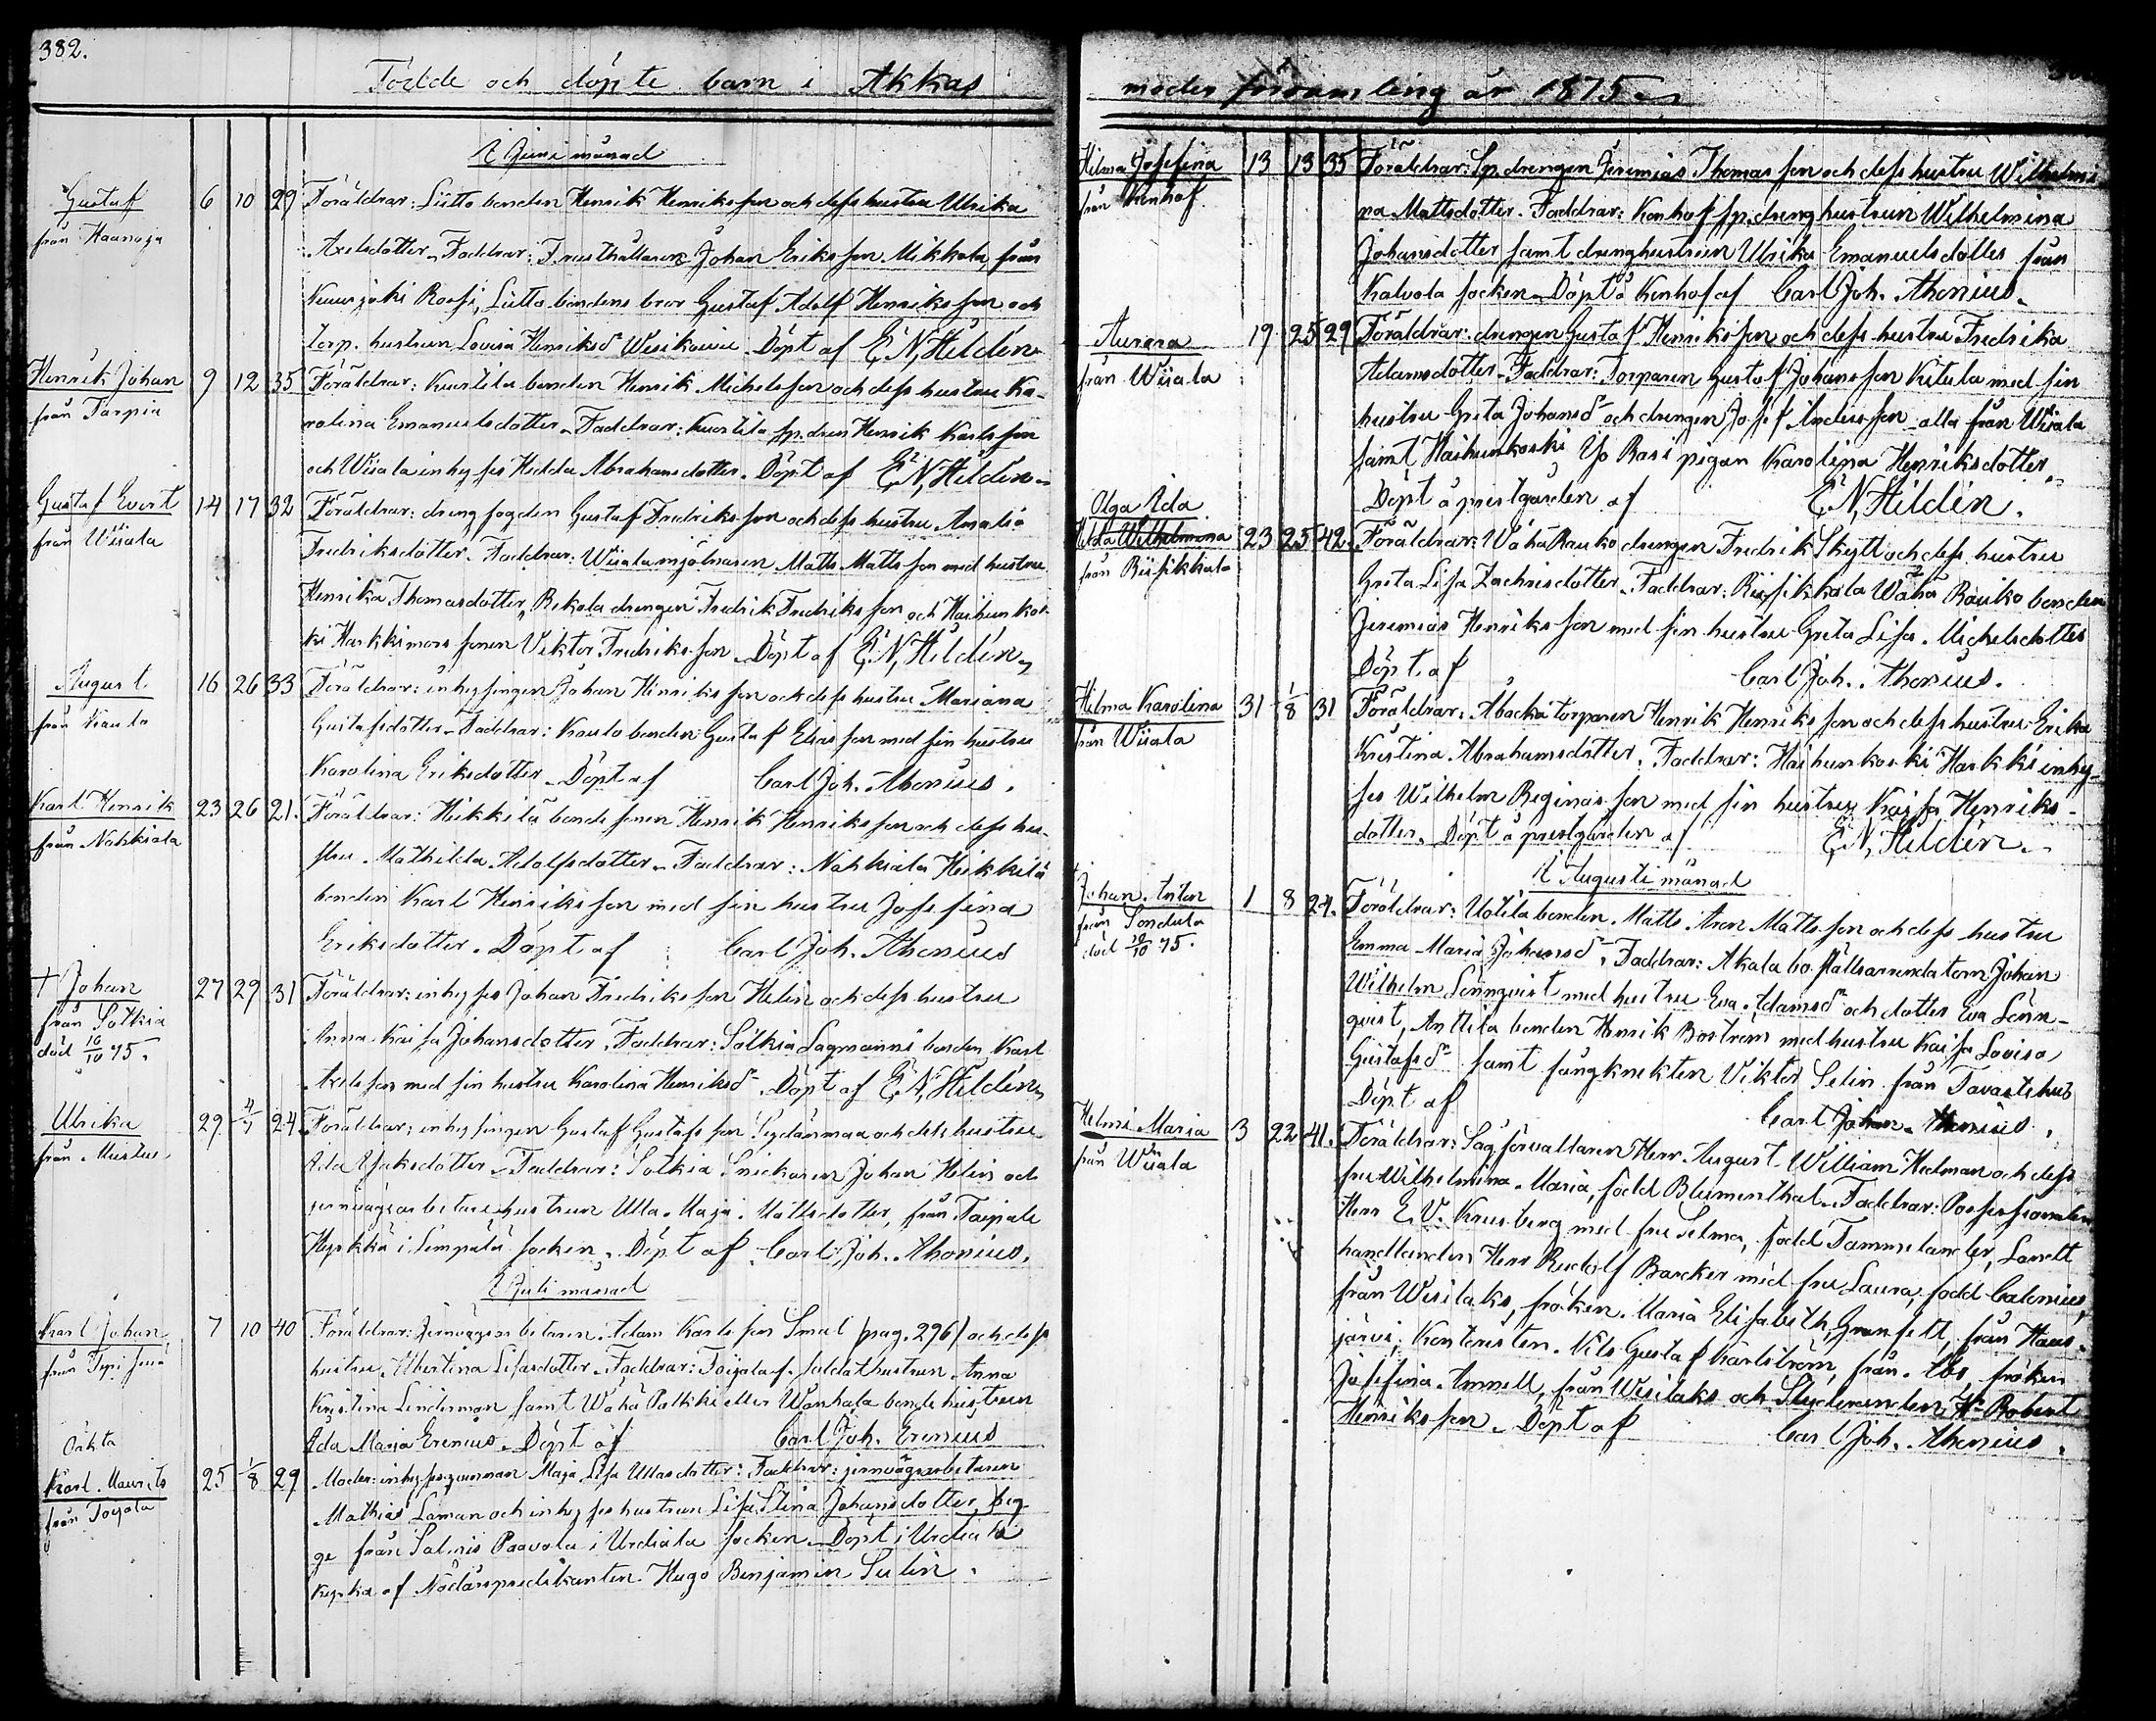 382.
Födde och döpte barn i Akkas
I Juni månad
Gustaf
från Haanoja
6 10 29 Föräldrar: Liitto bonden Henrik Henriksson och dess hustru Ulrika
Axelsdotter. Faddrar: Johan Eriksson Mikkola, från
Kuurjoki Rossi, Liitto bondens bror Gustaf Adolf Henriksson och
torp. hustrun Lovisa Henriksdr Döpt af E. N. Hildén
Henrik Johan
från Tarpia
9 12 35 Föräldrar: Kurtila bonden Henrik Michelsson och dess hustru Ka-
rolina Emanuelsdotter. Faddrar: Henrik Karlsson
och Wiiala inhyses Hedda Abrahamsdotter. Döpt af E. N. Hildén
Gustaf Evert
från Wiiala
14 17 32 Föräldrar: dreng fogden Gustaf Fredriksson och dess hustru Amalia
Fredriksdotter. Faddrar: Wiiala mjölnaren Matts Mattsson med hustru
Henrika Thomasdotter, Rekola drengen Fredrik Fredriksson och Haihunkos-
ki Harkkimais sonen Viktor Fredriksson. Döpt af E. N. Hildén
August
från Kaula
16 26 33 Föräldrar: inhysingen Johan Henriksson och dess hustru Mariana
Gustafsdotter. Faddrar: bonden Gustaf Eliasson med sin hustru
Karolina Eriksdotter. Döpt af Carl Joh. Ahonius.
Karl Henrik
från Nahkiala
23 26 21. Föräldrar: Heikkilä bondesonen Henrik Henriksson och dess hu-
stru Mathilda Adolfsdotter. Faddrar: Nahkiala Heikkilä
bonden Karl Henriksson med sin hustru Josefina
Eriksdotter. Döpt af Carl Joh. Ahonius
† Johan
från Sotkia
död 16/10 75.
27 29 31 Föräldrar: inhyses Johan Fredriksson Helin och dess hustru
Anna Kaisa Johansdotter. Faddrar: Sotkia Lagmanni bonden Karl
Axelsson med sin hustru Karolina Henriksdr Döpt af E. N. Hildén
Ulrika
från Mustue
29 4/7 24. Föräldrar: inhysingen Gustaf Gustafsson Sydänmaa och dess hustru
Ada Isaksdotter. Faddrar: Sotkia Snickaren Johan Helin och
jernvägsarbetare hustrun Ulla Maja Mattsdotter, från Taipale
i Lempälä socken. Döpt af Carl Joh. Ahonius.
I Juli månad
Karl Johan
7 10 40 Föräldrar: Jernvägsarbetaren Adam Karlsson Smal (pag. 296) och dess
hustru Albertina Lisasdotter. Faddrar: Toijala f. soldathustrun Anna
Kristina Linderman samt Wähä Potkki eller Wanhala bonde hustrun
Ada Maria Erenius. Döpt af Carl Joh. Erenius
Oäkta
Karl Maurits
från Toijala
25 1/8 29 Moder: inhyses qvinnan Maja Lisa Ullasdotter. Faddrar: jernvägsarbetaren
Mathias Laman och inhyses hustrun Lisa Stina Johansdotter, beg-
ge från Salmis Paavola i Urdiala socken. Döpt i Urdiala
kyrka af Nådårspredikanten Hugo Benjamin Selin.
moder församling år 1875.
Hilma Josefina
från Kenhof
13 13 35 Föräldrar: Sp. drengen Jeremias Thomasson och dess hustru Wilhelmi-
na Mattsdotter. Faddrar: Kenhof sp. dreng hustrun Wilhelmina
Johansdotter samt drenghustrun Ulrika Emanuelsdotter från
Kalvola socken. Döpt å Kenhof af Carl Joh. Ahonius.
Aurora
från Wiiala
19 25 29 Föräldrar: drengen Gustaf Henriksson och dess hustru Fredrika
Adamsdotter. Faddrar: Torparen Gustaf Johansson Ketula med sin
hustru Greta Johansdr och drengen Josef Andersson alla från Wiiala
samt Haihunkoski Yo Rasi pigan Karolina Henriksdotter.
Döpt å prestgården af E. N. Hildén.
Olga Ida
Hilda Wilhelmina
från Riisikkala
23 25 42. Föräldrar: Wähä Rauko drengen Fredrik Skytt och dess hustru
Greta Lisa Zachrisdotter. Faddrar: Riisikkala Wähä Rauko bonden
Jeremias Henriksson med sin hustru Greta Lisa Michelsdotter
Döpt af Carl Joh. Ahonius.
Helma Karolina
från Wiiala
31 1/8 31 Föräldrar: Åbacka torparen Henrik Henriksson och dess hustru Erika
Kristina Abrahamsdotter. Faddrar: Haihunkoski Harkki inhy-
ses Wilhelm Reginasson med sin hustru Kaisa Henriks-
dotter. Döpt å prestgården af E. N. Hildén.
I Augusti månad
† Johan Anton
från Sondula
död 10/10 75.
1 8 24. Föräldrar: Uotila bonden Matts Aron Mattsson och dess hustru
Emma Maria Johansdr Faddrar: Akala boställsarrendatorn Johan
Wilhelm Lönnqvist med hustru Eva Adamsdr och dotter Eva Lönn-
qvist, Anttila bonden Henrik Boström med hustru Kaisa Lovisa
Gustafsdr samt fångknekten Viktor Selin från Tavastehus
Döpt af Carl Johan Ahonius.
Helmi Maria
från Wiiala
3 22 41. Föräldrar: Sågförvaltaren Herr August William Hedman och dess
fru Wilhelmina Maria, född Blumenthal. Faddrar: Possessionaten
Herr E. V. Krusberg med fru Selma, född Tammelander, Landt
handlanden Herr Rudolf Barcker med fru Laura, född Calonius,
från Wesilaks, fröken Maria Elisabeth Granfelt, från Haus-
järvi, Kontoristen Nils Gustaf Karlström, från Åbo, fröken
Josefina Amnell, från Wesilaks och Studeranden Hr Robert
Henriksson. Döpt af Carl Joh. Ahonius.